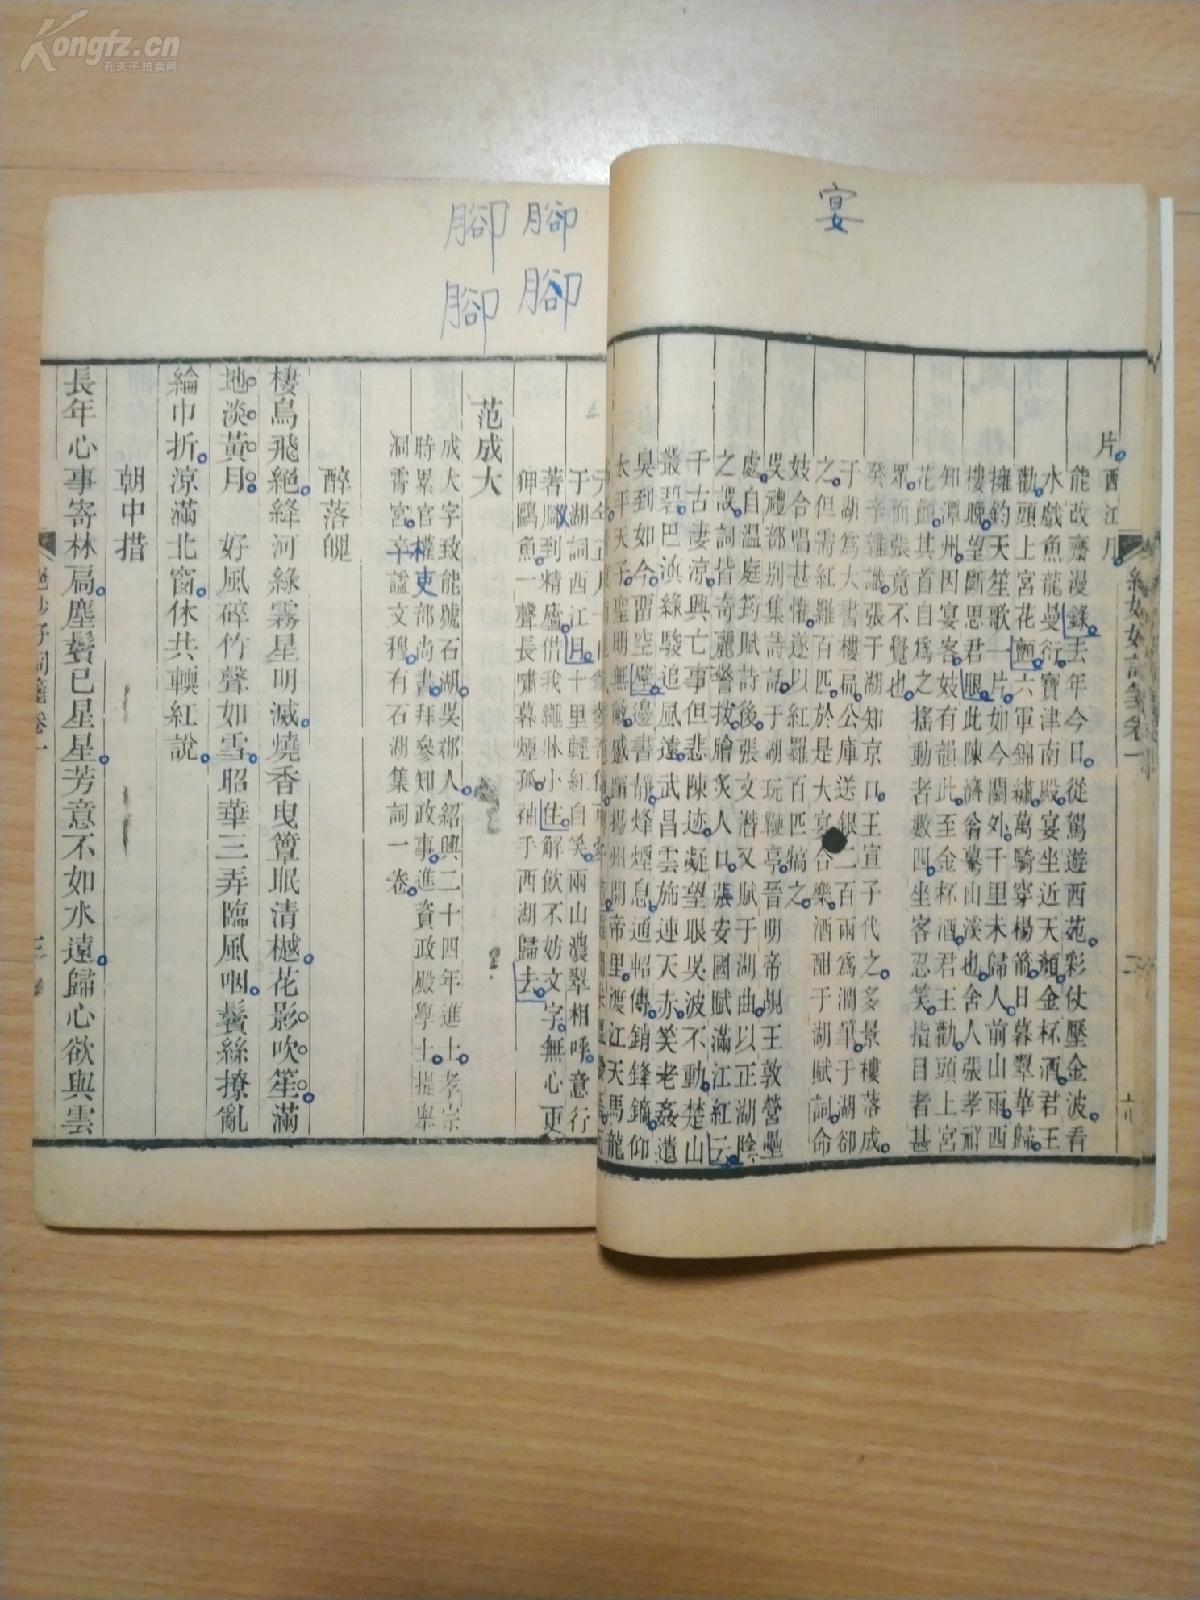 Kongfz.cn
孔夫子拍卖网
宴
腳 腳
腳 腳
絕妙好詞箋卷一
片西江月
能改齋漫錄去年今日從駕遊西苑彩仗壓金波看
水戲魚龍曼衍寶津南殿宴坐近天顏金杯酒君王
勸頭上宮花顫六軍錦繡萬騎穿楊箭日暮翠華歸
擁鈞天笙歌一片如今關外千里未歸人前山雨西
樓晚望斷思君眼此陳濟翁驀山溪也舍人張孝祥
知潭州因宴客妓有韻此至金杯酒君王勸頭上宮
花顫其首自爲之搖動者數四坐客忍笑指目者甚
眾而張竟不覺也
癸辛雜識張于湖知京口王宣子代之多景樓落成
于湖爲大書樓扁公庫送銀二百兩爲潤筆于湖卻
之但需紅羅百匹於是大宴合樂酒酣于湖賦詞命
妓合唱甚懽遂以紅羅百匹犒之
吳禮部別集詩話于湖玩鞭亭晉明帝覘王敦營壘
處自溫庭筠賦詩後張文潛又賦于湖曲以正湖陰
之誤詞皆奇麗警拔膾炙人口張安國賦滿江紅云
千古淒涼興亡事但悲陳迹凝望眼吳波不動楚山
叢碧巴滇綠駿追風遠武昌雲旆連天赤笑老姦遺
臭到如今留空壁邊書靜烽煙息通軺傳銷鋒鏑仰
太平天子聖明無敵蹙踏揚州開帝里渡江天馬龍
于湖詞西江月十里輕紅自笑兩山濃翠相呼意行
著腳到精廬借我繩牀小住解飲不妨文字無心更
狎鷗魚一聲長嘯暮煙孤袖手西湖歸去
范成大
成大字致能號石湖吳郡人紹興二十四年進士孝宗
時累官權吏部尚書拜參知政事進資政殿學士提舉
洞霄宮卒諡文穆有石湖集詞一卷
醉落魄
棲烏飛絕絳河綠霧星明滅燒香曳簟眠清樾花影吹笙滿
地淡黃月　好風碎竹聲如雪昭華三弄臨風咽鬢絲撩亂
綸巾折涼滿北窗休共輭紅說
朝中措
長年心事寄林扃塵鬢已星星芳意不如水遠歸心欲與雲
絕妙好詞箋卷一